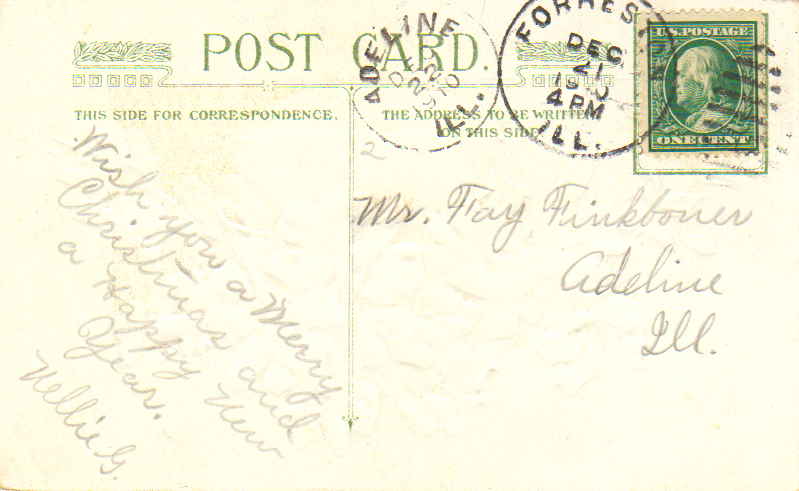 POST CARD.
ADELINE
DE
22
1910
ILL.
FORREST
DEC
21
1910
4 PM
ILL.
U.S. POSTAGE
ONE CENT
THIS SIDE FOR CORRESPONDENCE.
THE ADDRESS TO BE WRITTEN
ON THIS SIDE
2
Wish you a Merry
Christmas and
a Happy New
Year.
Nellie G.
Mr. Fay Finkboner
Adeline
Ill.